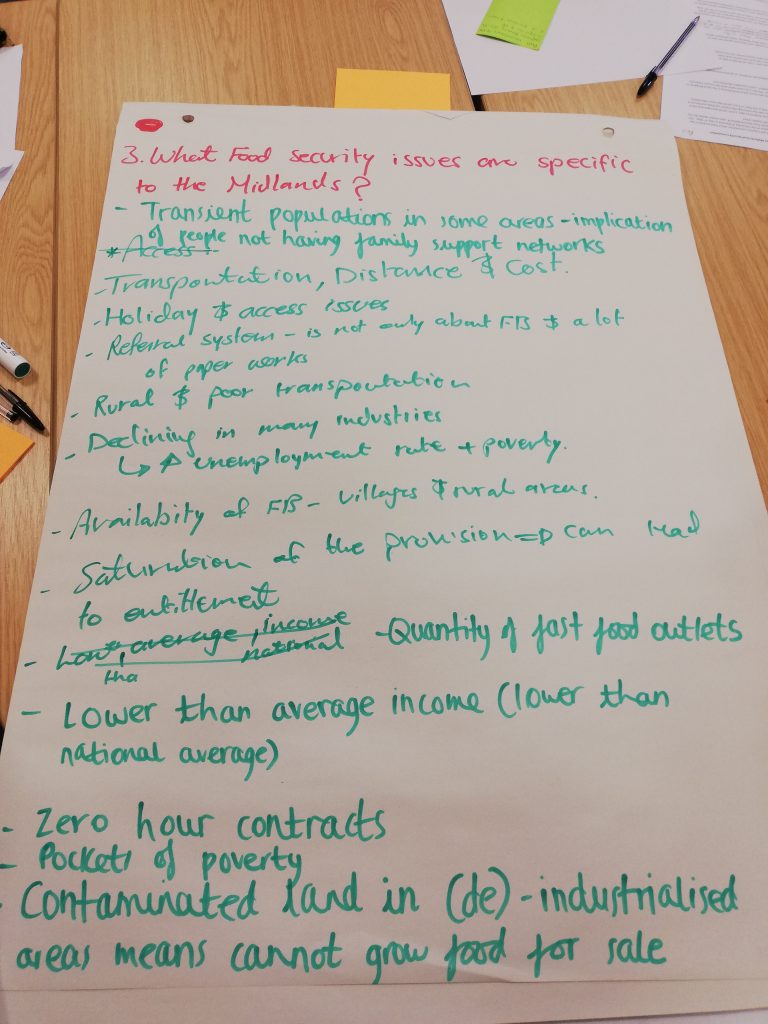 3. What Food security issues are specific
to the Midlands?
- Transient populations in some areas - implication
of people not having family support networks
* Access:
- Transportation, Distance & Cost.
- Holiday & access issues
- Referral system - is not only about FB & a lot
of paper works
- Rural & poor transportation
- Declining in many industries
↳ ↑ unemployment rate + poverty.
- Availabity of FB - villages & rural areas.
- Saturation of the provision => can lead
to entitlement
- Low, average, income
national
tha
- Quantity of fast food outlets
- Lower than average income (lower than
national average)
- Zero hour contracts
- Pockets of poverty
- Contaminated land in (de)-industrialised
areas means cannot grow food for sale